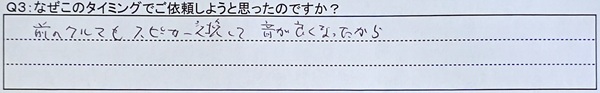 Q3：なぜこのタイミングでご依頼しようと思ったのですか？
前のクルマもスピーカー交換して音が良くなったから